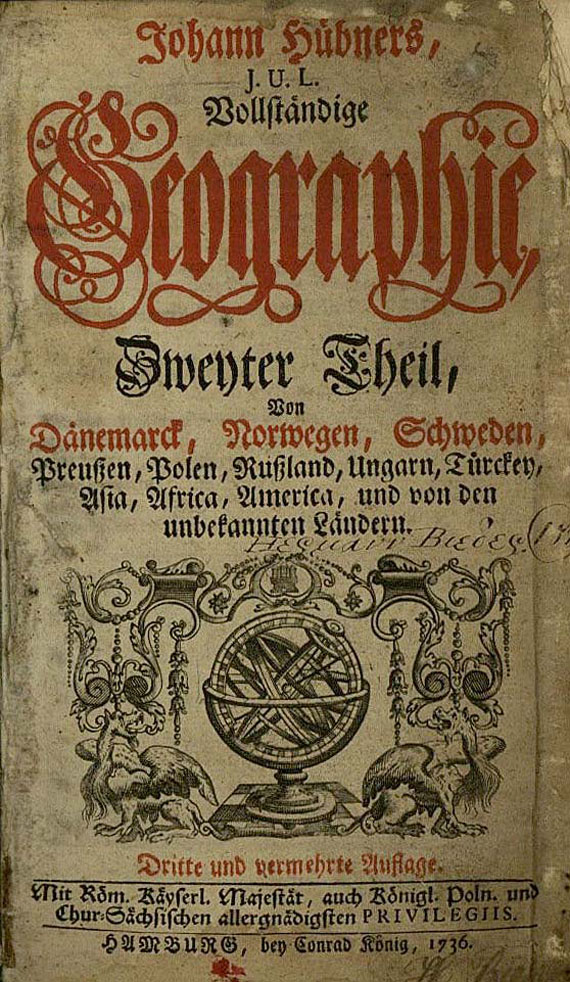 Johann Hübners,
J. U. L.
Vollständige
Geographie,
Zweyter Theil,
Von
Dänemarck, Norwegen, Schweden,
Preußen, Polen, Rußland, Ungarn, Türckey,
Asia, Africa, America, und von den
unbekannten Ländern.
Dritte und vermehrte Auflage.
Mit Röm. Käyserl. Majestät, auch Königl. Poln. und
Chur-Sächsischen allergnädigsten PRIVILEGIIS.
HAMBURG, bey Conrad König, 1736.